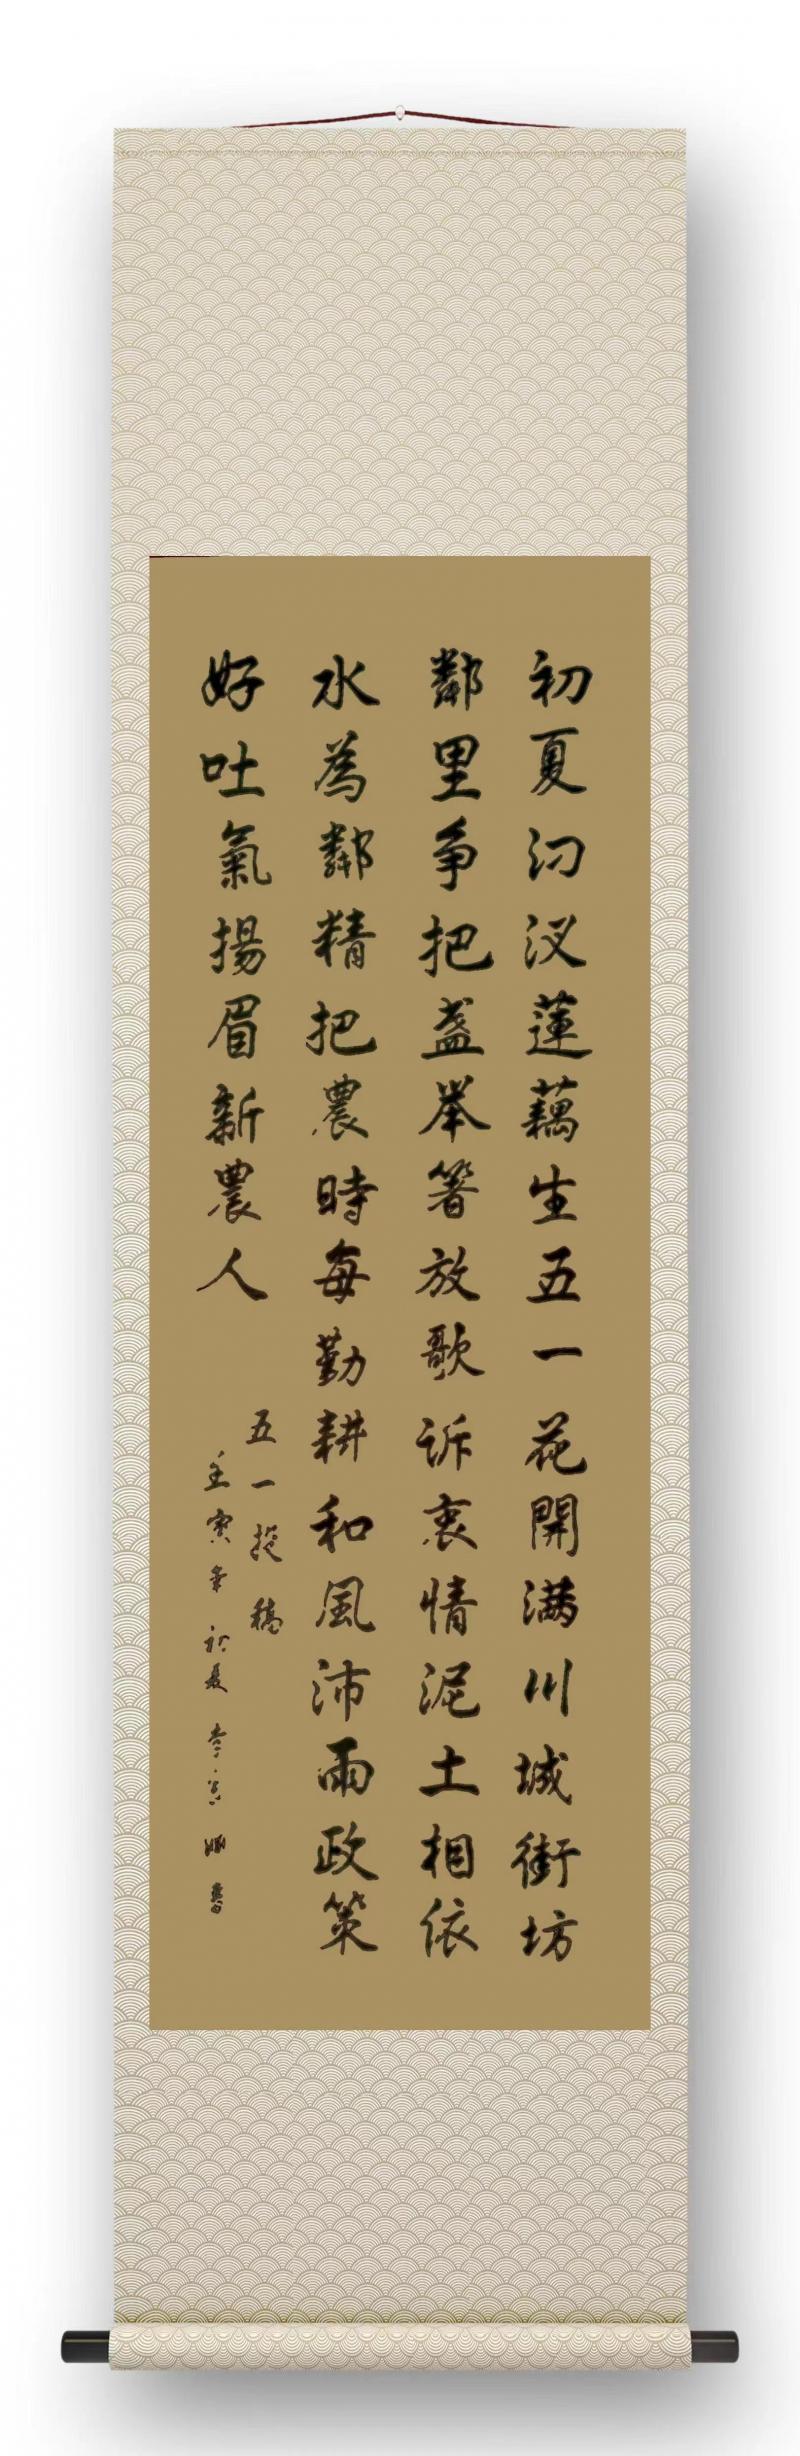 初夏汈汊蓮藕生五一花開满川城街坊
鄰里争把盏举箸放歌诉衷情泥土相依
水為鄰精把農時每勤耕和風沛雨政策
好吐氣揚眉新農人
五一投稿
壬寅年初夏李書